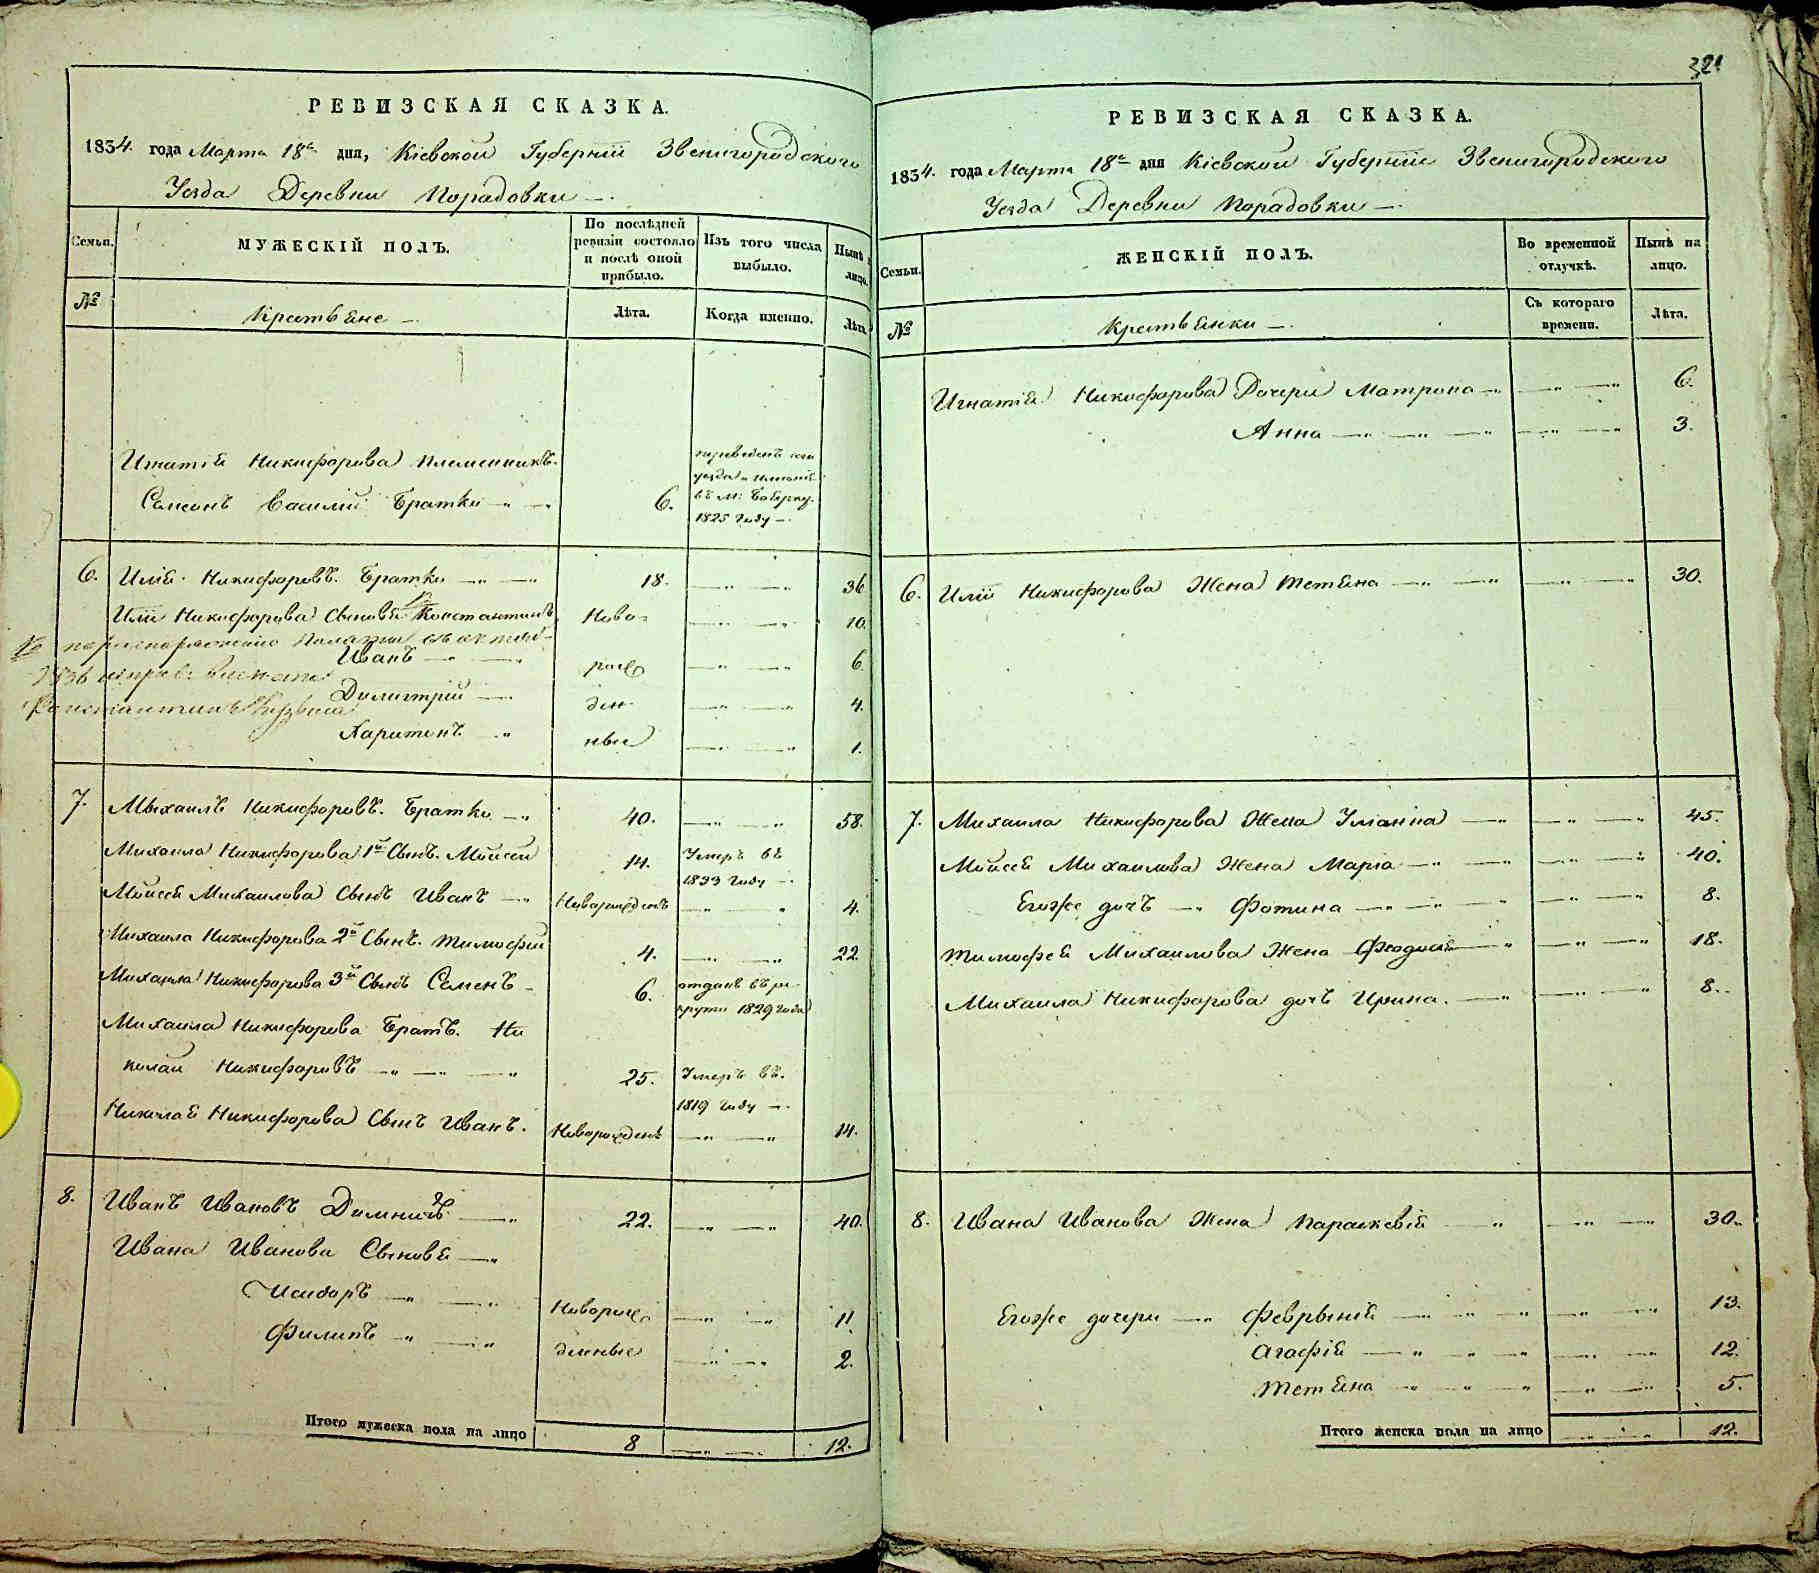 321
РЕВИЗСКАЯ СКАЗКА.
1834. года Марта 18го дня, Кіевской Губерніи Звенигородского
Уезда Деревни Порадовки
Семьи.
МУЖЕСКІЙ ПОЛЪ.
По послѣдней ревизіи состояло и послѣ оной прибыло.
Изъ того числа выбыло.
Нынѣ на лицо.
№
Крестьяне
Лѣта.
Когда именно.
Лѣта.
Игнатія Никифорова племенникъ.
Самсонъ Василій Братки 6. 1825 году
6. Илія Никифоровъ Братки 18. 36
Иліи Никифорова Сыновья Константинъ Ново- 10.
Иванъ рож 6.
Димитрій ден- 4.
Харитонъ ные 1.
7. Михаилъ Никифоровъ. Братки 40. 58.
Михаила Никифорова 1й Сынъ. Мойсей 14. Умеръ въ 1833 году
Мойсея Михаилова Сынъ Иванъ Новорожденъ 4.
Михаила Никифорова 2й Сынъ. Тимофей 4. 22
Михаила Никифорова 3й Сынъ Семенъ 6. отданъ въ рекруты 1829 года
Михаила Никифорова Братъ. Ни
колай Никифоровъ 25. Умеръ въ. 1819 году
Николая Никифорова Сынъ Иванъ. Новорожденъ 14.
8. Иванъ Ивановъ 22. 40.
Ивана Иванова Сыновья
Исидоръ Новорож 11
Филипъ денные 2.
Итого мужеска пола на лицо 8 12.
РЕВИЗСКАЯ СКАЗКА.
1834. года Марта 18го дня Кіевской Губерніи Звенигородского
Уезда Деревни Порадовки
Семьи.
ЖЕНСКІЙ ПОЛЪ.
Во временной отлучкѣ.
Нынѣ на лицо.
№
Крестьянки
Съ котораго времени.
Лѣта.
Игнатія Никифорова Дочери Матрона 6.
Анна 3.
6. Иліи Никифорова Жена Тетяна 30.
7. Михаила Никифорова Жена Уліанна 45.
Мойсея Михаилова Жена Марія 40.
Егоже дочь Фотина 8.
Тимофея Михаилова Жена Феодосія 18.
Михаила Никифорова дочь Ирина. 8.
8. Ивана Иванова Жена Параскевія 30.
Егоже дочери Феврынія 13.
Агафія 12.
Тетяна 5.
Итого женска пола на лицо 12.